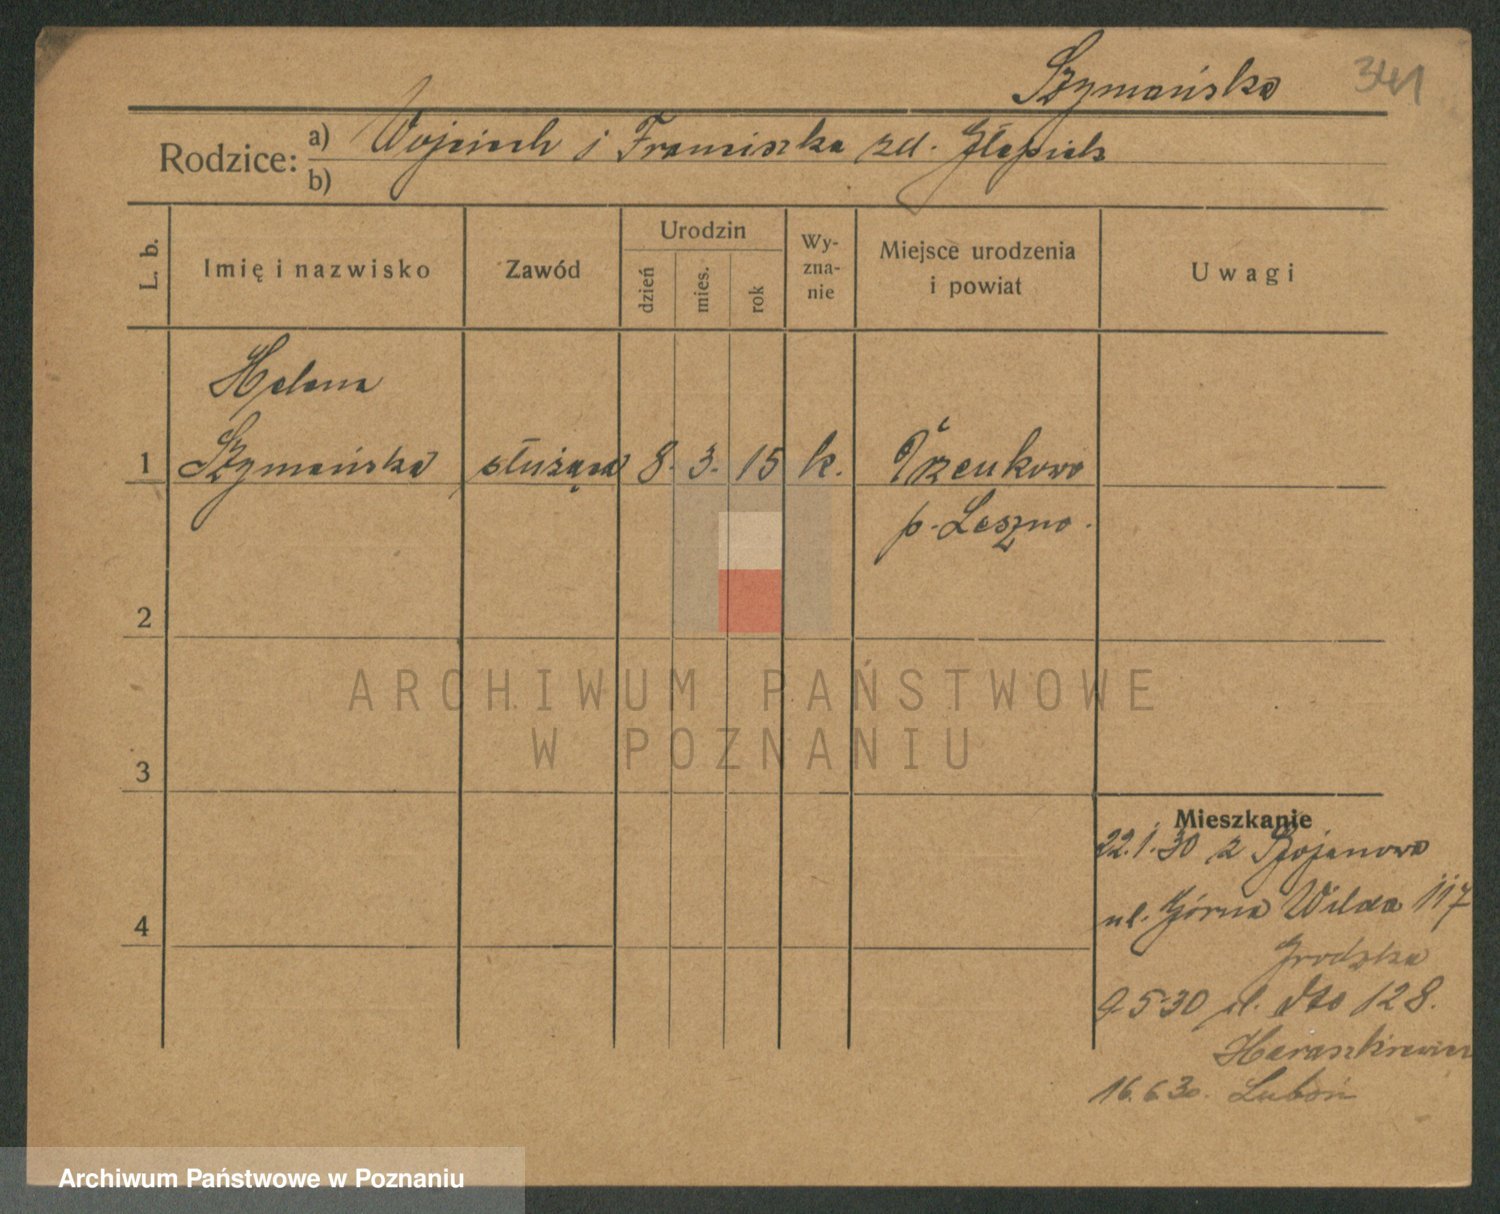 Szymańska 341
Rodzice: a) Wojciech i Franciszka zd. Ślepiak
b)
L. b. Imię i nazwisko Zawód Urodzin dzień mies. rok Wyznanie Miejsce urodzenia i powiat Uwagi
Helena
1 Szymańska służąca 8. 3. 15 k.
p. Leszno.
2
3
4
Mieszkanie
22.1.30 z Bojanowa
ul. Górna Wilda 117
Grodzka
9.5.30 ul. dto 128.
Haraszkiewicz
16.6.30. Luboń
ARCHIWUM PAŃSTWOWE
W POZNANIU
Archiwum Państwowe w Poznaniu